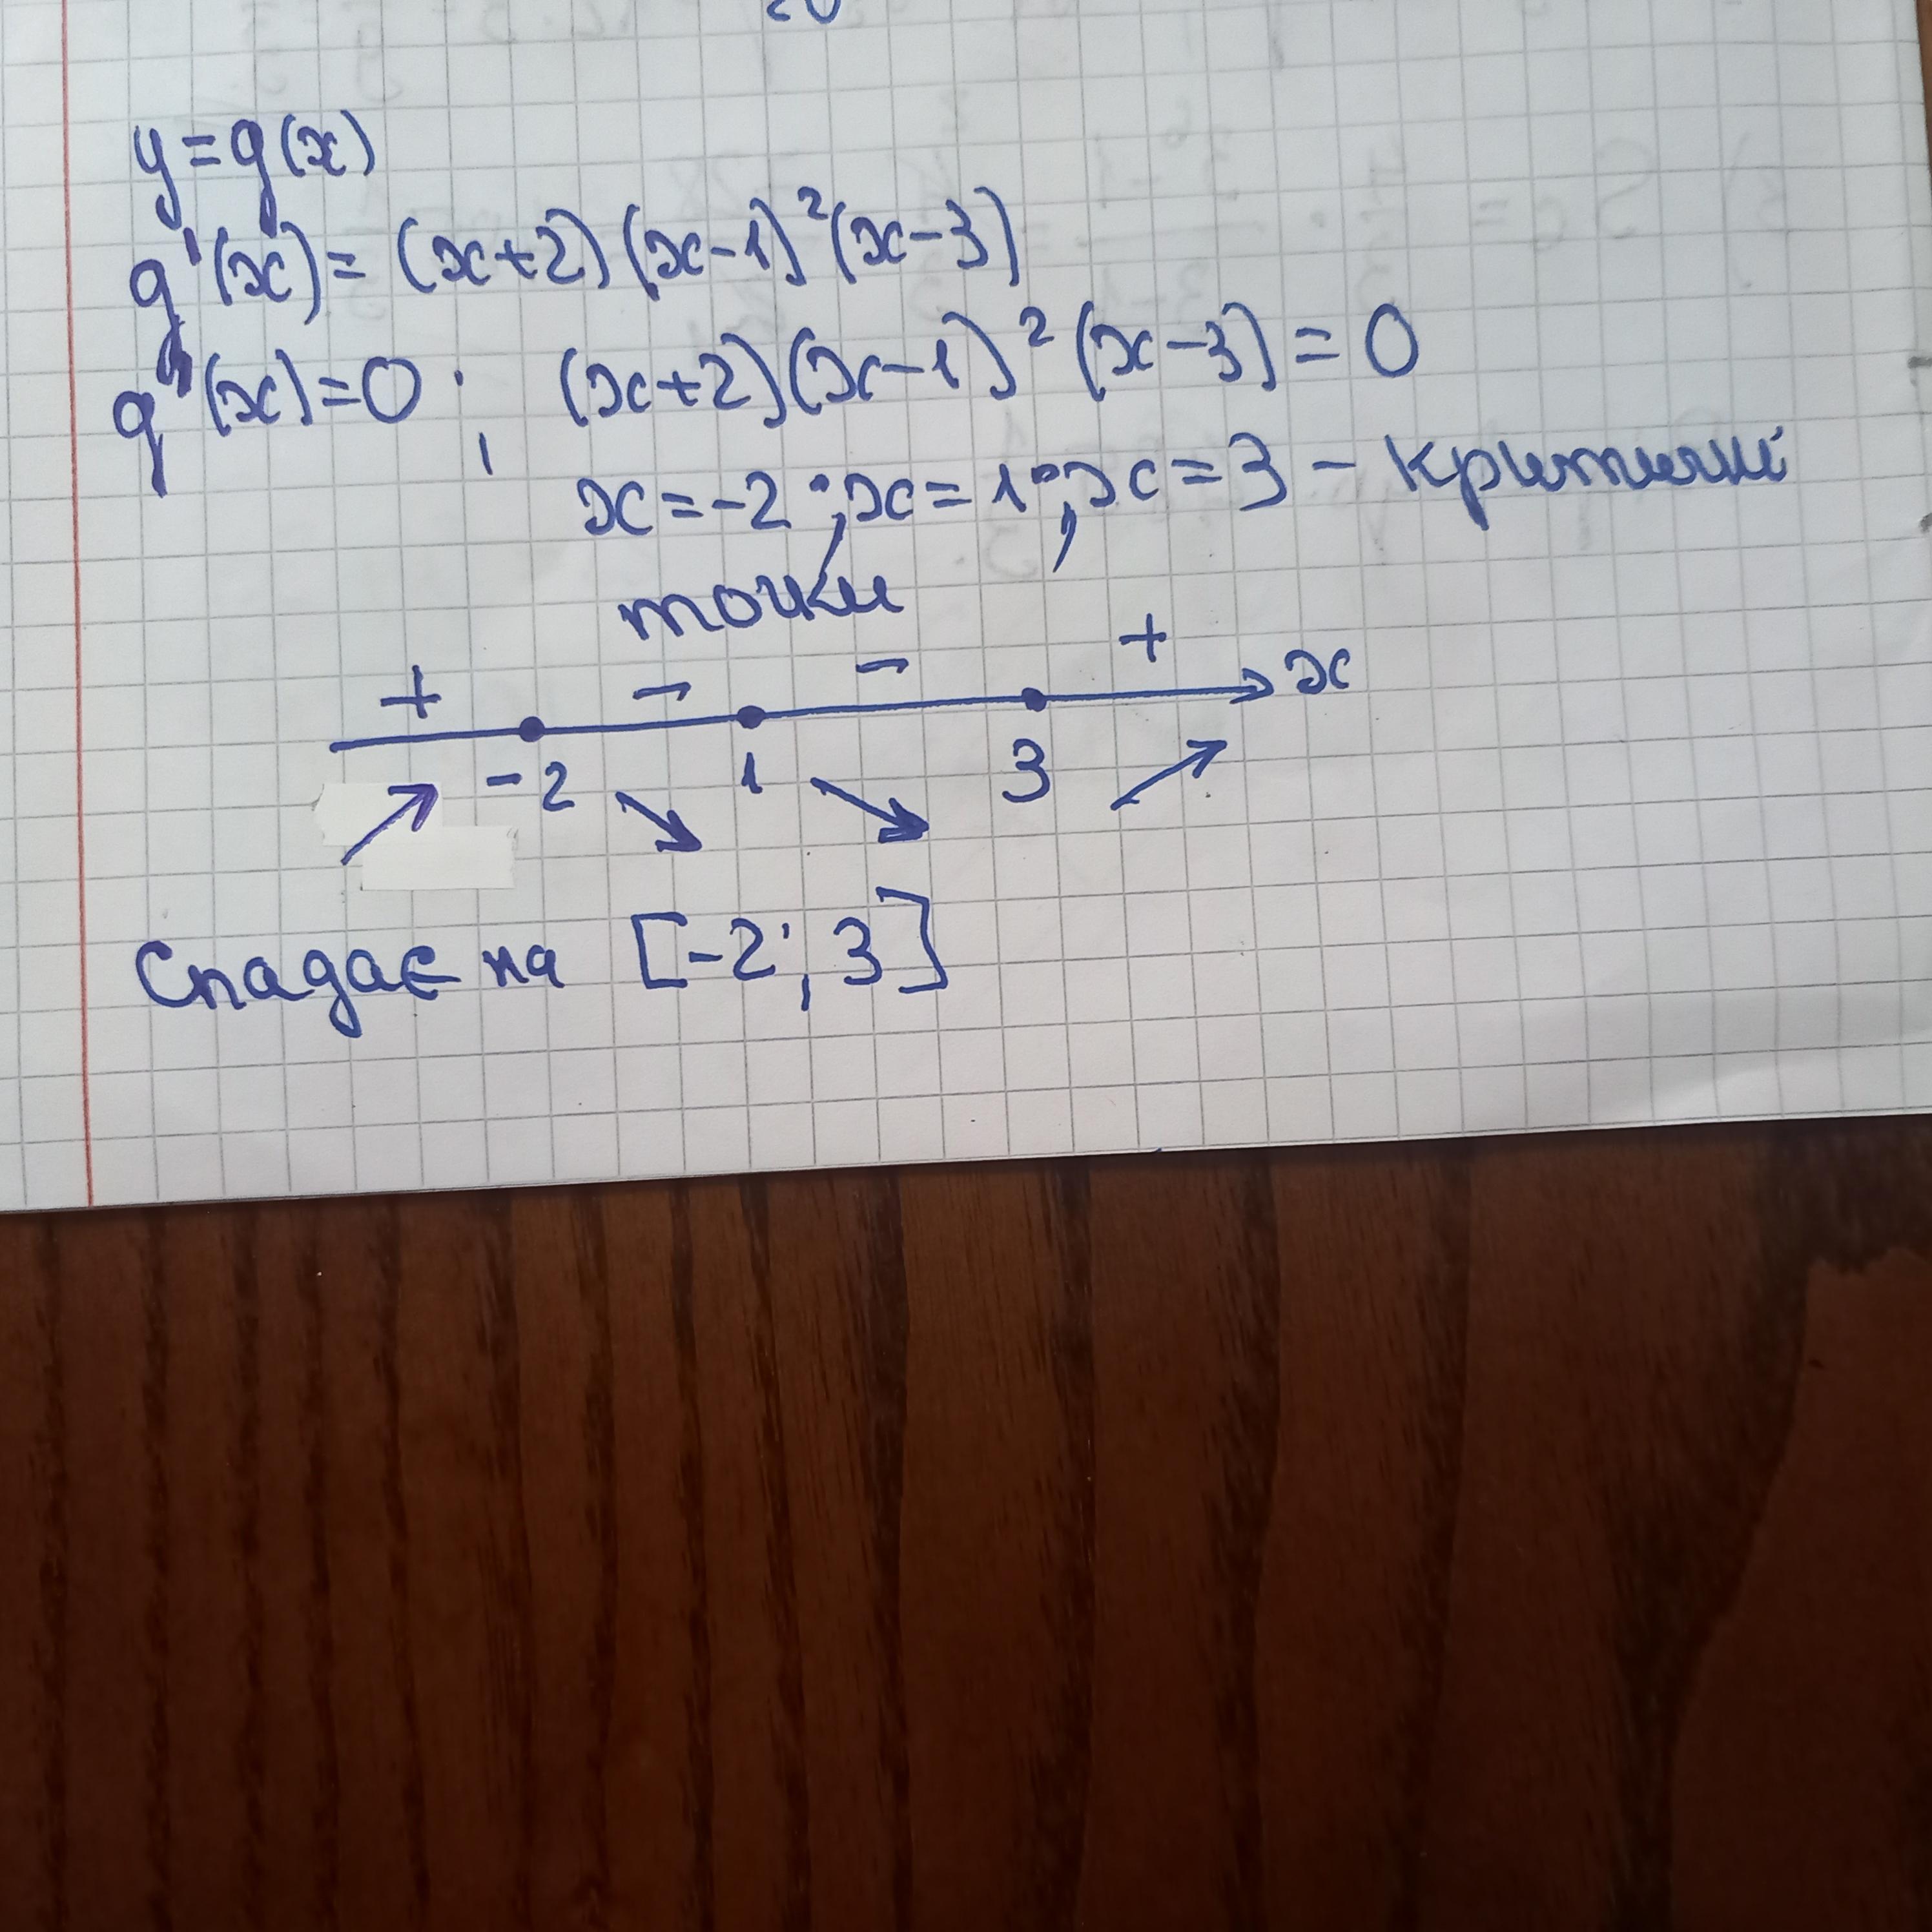 y = g(x)
g'(x) = (x+2)(x-1)²(x-3)
g'(x)=0; (x+2)(x-1)²(x-3)=0
x=-2; x=1; x=3 - критичні
точки
+ - - + x
-2 1 3
Спадає на [-2; 3]